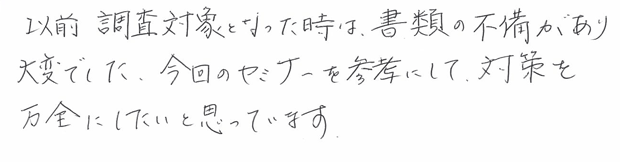 以前 調査対象となった時は、書類の不備があり
大変でした、今回のセミナーを参考にして、対策を
万全にしたいと思っています。